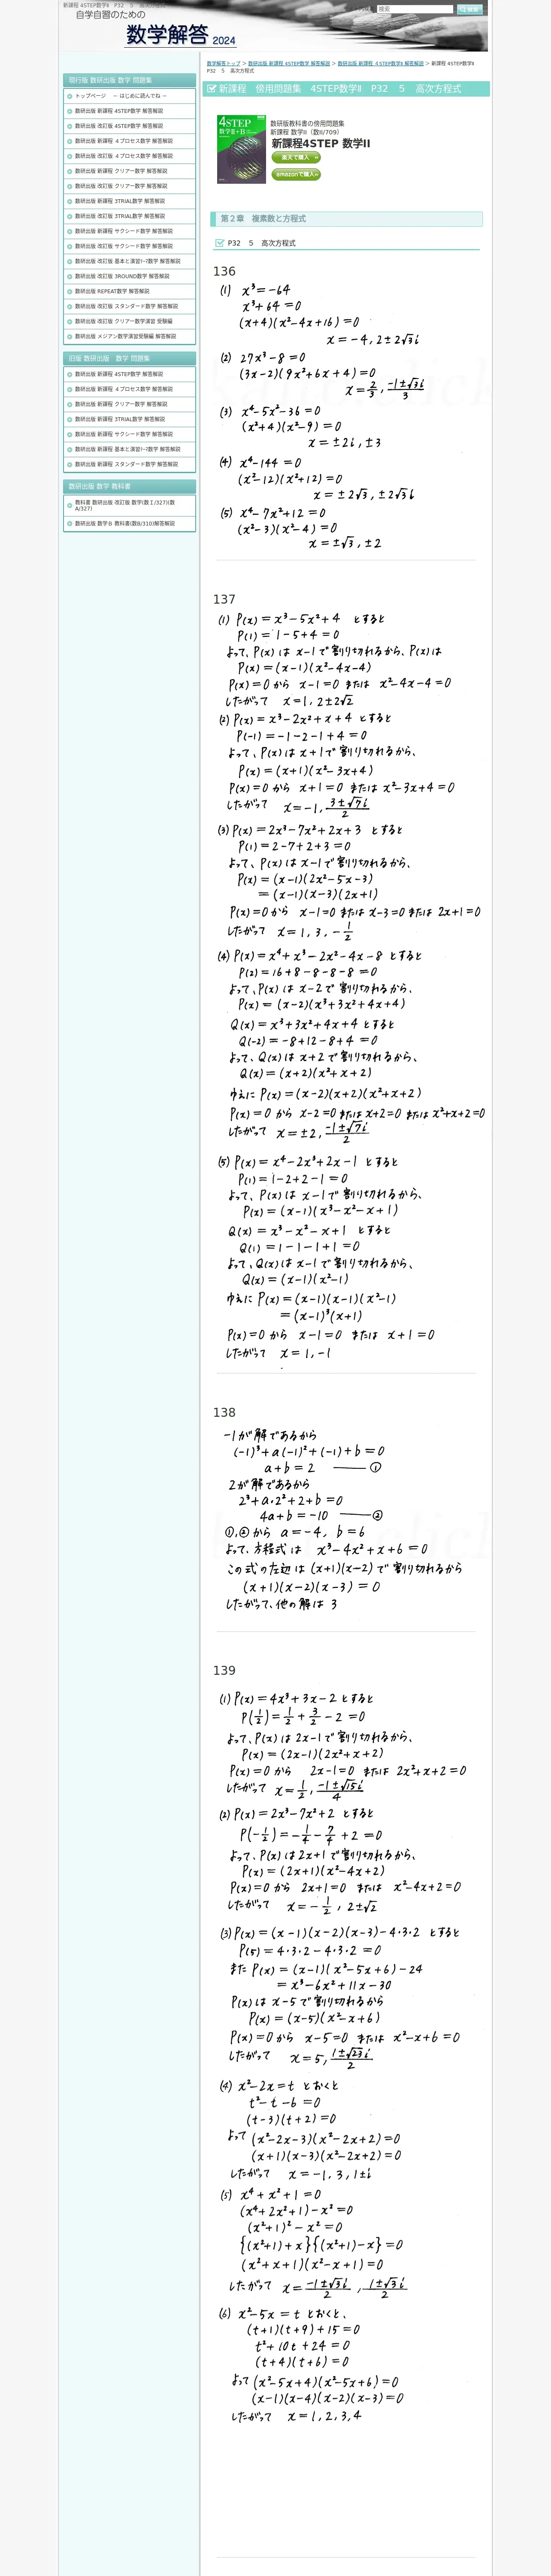 新課程 4STEP数学Ⅱ P32 5 高次方程式
自学自習のための
数学解答 2024
検索
検索
現行版 数研出版 数学 問題集
トップページ － はじめに読んでね －
数研出版 新課程 4STEP数学 解答解説
数研出版 改訂版 4STEP数学 解答解説
数研出版 新課程 4プロセス数学 解答解説
数研出版 改訂版 4プロセス数学 解答解説
数研出版 新課程 クリアー数学 解答解説
数研出版 改訂版 クリアー数学 解答解説
数研出版 新課程 3TRIAL数学 解答解説
数研出版 改訂版 3TRIAL数学 解答解説
数研出版 新課程 サクシード数学 解答解説
数研出版 改訂版 サクシード数学 解答解説
数研出版 改訂版 基本と演習ﾃｰﾏ数学 解答解説
数研出版 改訂版 3ROUND数学 解答解説
数研出版 REPEAT数学 解答解説
数研出版 改訂版 スタンダード数学 解答解説
数研出版 改訂版 クリアー数学演習 受験編
数研出版 メジアン数学演習受験編 解答解説
旧版 数研出版 数学 問題集
数研出版 新課程 4STEP数学 解答解説
数研出版 新課程 4プロセス数学 解答解説
数研出版 新課程 クリアー数学 解答解説
数研出版 新課程 3TRIAL数学 解答解説
数研出版 新課程 サクシード数学 解答解説
数研出版 新課程 基本と演習ﾃｰﾏ数学 解答解説
数研出版 新課程 スタンダード数学 解答解説
数研出版 数学 教科書
教科書 数研出版 改訂版 数学Ⅰ(数Ⅰ/327)(数
A/327)
数研出版 数学Ｂ 教科書(数B/310)解答解説
数学解答トップ ＞ 数研出版 新課程 4STEP数学 解答解説 ＞ 数研出版 新課程 4STEP数学Ⅱ 解答解説 ＞ 新課程 4STEP数学Ⅱ
P32 5 高次方程式
新課程 傍用問題集 4STEP数学Ⅱ P32 5 高次方程式
4STEP
数学Ⅱ+B
数研出版教科書の傍用問題集
新課程 数学II（数II/709）
新課程4STEP 数学II
楽天で購入 »
amazonで購入»
第２章 複素数と方程式
P32 5 高次方程式
136
(1) x³=-64
x³+64=0
(x+4)(x²-4x+16)=0
x=-4, 2±2√3i
(2) 27x³-8=0
(3x-2)(9x²+6x+4)=0
x=2/3, (-1±√3i)/3
(3) x⁴-5x²-36=0
(x²+4)(x²-9)=0
x=±2i, ±3
(4) x⁴-144=0
(x²-12)(x²+12)=0
x=±2√3, ±2√3i
(5) x⁴-7x²+12=0
(x²-3)(x²-4)=0
x=±√3, ±2
137
(1) P(x)=x³-5x²+4 とすると
P(1)=1-5+4=0
よって、P(x)は x-1で割り切れるから、P(x)は
P(x)=(x-1)(x²-4x-4)
P(x)=0から x-1=0 または x²-4x-4=0
したがって x=1, 2±2√2
(2) P(x)=x³-2x²+x+4 とすると
P(-1)=-1-2-1+4=0
よって、P(x)は x+1で割り切れるから、
P(x)=(x+1)(x²-3x+4)
P(x)=0から x+1=0 または x²-3x+4=0
したがって x=-1, (3±√7i)/2
(3) P(x)=2x³-7x²+2x+3 とすると
P(1)=2-7+2+3=0
よって、P(x)は x-1で割り切れるから、
P(x)=(x-1)(2x²-5x-3)
=(x-1)(x-3)(2x+1)
P(x)=0から x-1=0 または x-3=0 または 2x+1=0
したがって x=1, 3, -1/2
(4) P(x)=x⁴+x³-2x²-4x-8 とすると
P(2)=16+8-8-8-8=0
よって、P(x)は x-2で割り切れるから、
P(x)=(x-2)(x³+3x²+4x+4)
Q(x)=x³+3x²+4x+4 とすると
Q(-2)=-8+12-8+4=0
よって、Q(x)は x+2で割り切れるから、
Q(x)=(x+2)(x²+x+2)
ゆえに P(x)=(x-2)(x+2)(x²+x+2)
P(x)=0から x-2=0 または x+2=0 または x²+x+2=0
したがって x=±2, (-1±√7i)/2
(5) P(x)=x⁴-2x³+2x-1 とすると
P(1)=1-2+2-1=0
よって、P(x)は x-1で割り切れるから、
P(x)=(x-1)(x³-x²-x+1)
Q(x)=x³-x²-x+1 とすると
Q(1)=1-1-1+1=0
よって、Q(x)は x-1で割り切れるから、
Q(x)=(x-1)(x²-1)
ゆえに P(x)=(x-1)(x-1)(x²-1)
=(x-1)³(x+1)
P(x)=0から x-1=0 または x+1=0
したがって x=1, -1
138
-1が解であるから
(-1)³+a(-1)²+(-1)+b=0
a+b=2 ―― ①
2が解であるから
2³+a・2²+2+b=0
4a+b=-10 ―― ②
①,②から a=-4, b=6
よって、方程式は x³-4x²+x+6=0
この式の左辺は (x+1)(x-2)で割り切れるから
(x+1)(x-2)(x-3)=0
したがって、他の解は 3
139
(1) P(x)=4x³+3x-2 とすると
P(1/2)=1/2+3/2-2=0
よって、P(x)は 2x-1で割り切れるから、
P(x)=(2x-1)(2x²+x+2)
P(x)=0から 2x-1=0 または 2x²+x+2=0
したがって x=1/2, (-1±√15i)/4
(2) P(x)=2x³-7x²+2 とすると
P(-1/2)=-1/4-7/4+2=0
よって、P(x)は2x+1で割り切れるから、
P(x)=(2x+1)(x²-4x+2)
P(x)=0から 2x+1=0 または x²-4x+2=0
したがって x=-1/2, 2±√2
(3) P(x)=(x-1)(x-2)(x-3)-4・3・2 とすると
P(5)=4・3・2-4・3・2=0
また P(x)=(x-1)(x²-5x+6)-24
=x³-6x²+11x-30
P(x)は x-5で割り切れるから
P(x)=(x-5)(x²-x+6)
P(x)=0から x-5=0 または x²-x+6=0
したがって x=5, (1±√23i)/2
(4) x²-2x=t とおくと
t²-t-6=0
(t-3)(t+2)=0
よって (x²-2x-3)(x²-2x+2)=0
(x+1)(x-3)(x²-2x+2)=0
したがって x=-1, 3, 1±i
(5) x⁴+x²+1=0
(x⁴+2x²+1)-x²=0
(x²+1)²-x²=0
{(x²+1)+x}{(x²+1)-x}=0
(x²+x+1)(x²-x+1)=0
したがって x=(-1±√3i)/2, (1±√3i)/2
(6) x²-5x=t とおくと、
(t+1)(t+9)+15=0
t²+10t+24=0
(t+4)(t+6)=0
よって (x²-5x+4)(x²-5x+6)=0
(x-1)(x-4)(x-2)(x-3)=0
したがって x=1, 2, 3, 4